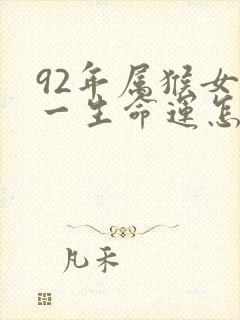 92年属猴女
一生命运怎
凡禾